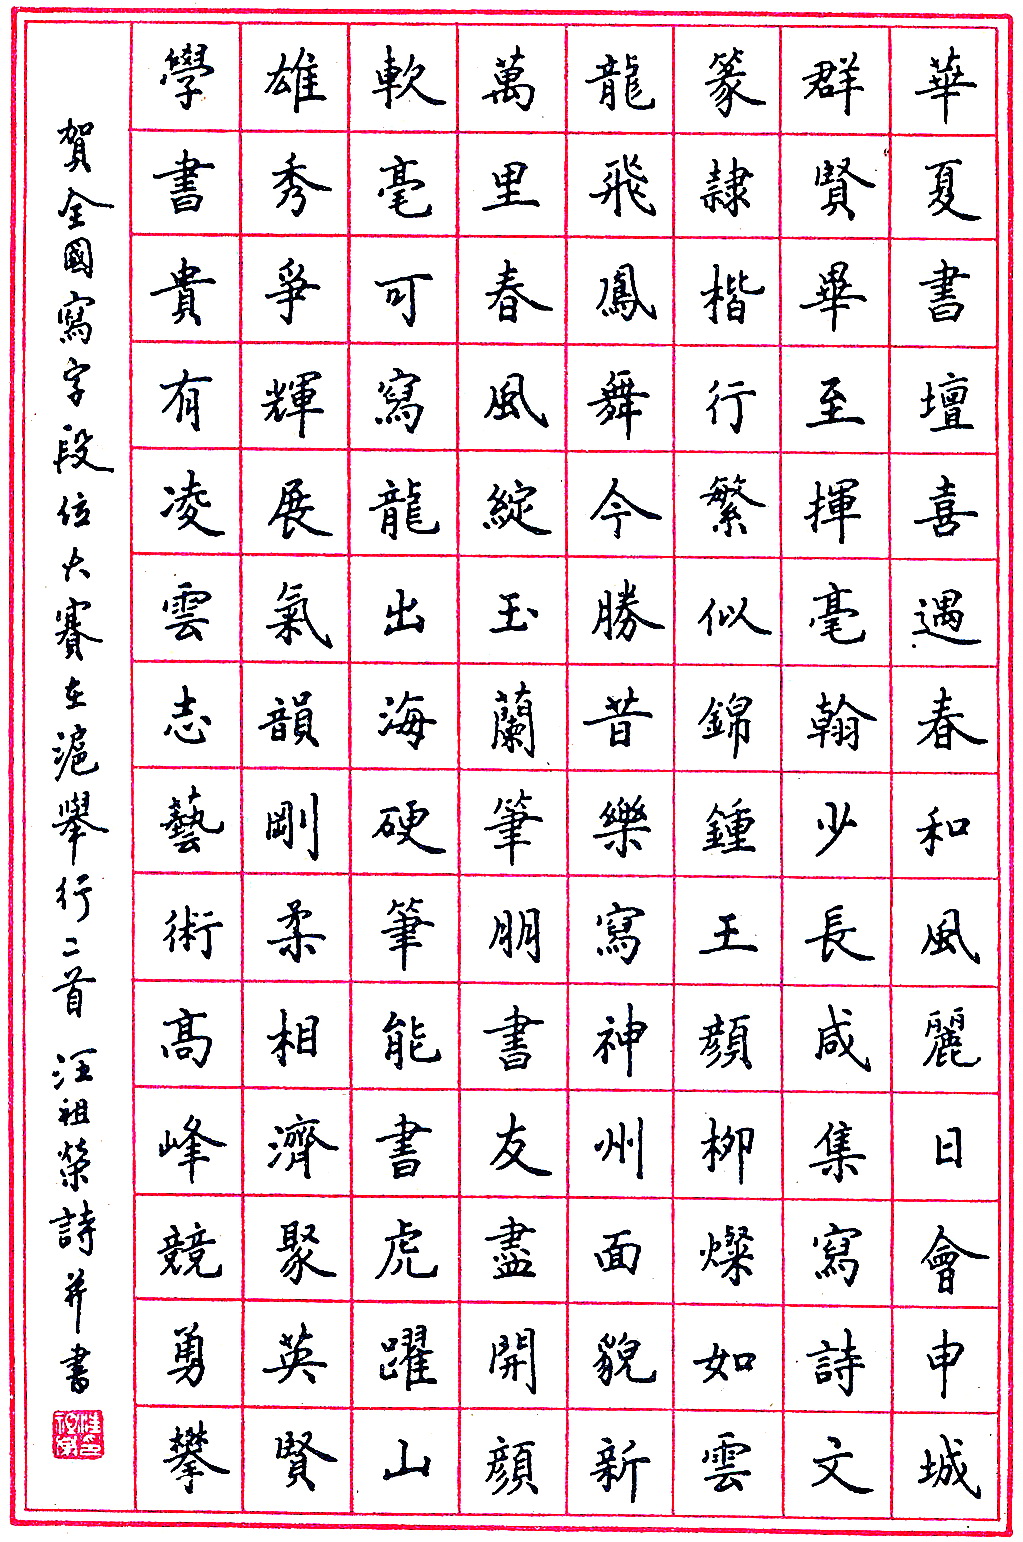 華夏書壇喜遇春和風麗日會申城
群賢畢至揮毫翰少長咸集寫詩文
篆隸楷行繁似錦鍾王顏柳燦如雲
龍飛鳳舞今勝昔樂寫神州面貌新
萬里春風綻玉蘭筆朋書友盡開顏
軟毫可寫龍出海硬筆能書虎躍山
雄秀爭輝展氣韻剛柔相濟聚英賢
學書貴有凌雲志藝術高峰競勇攀
賀全國寫字段位大賽在滬舉行二首 汪祖榮詩并書